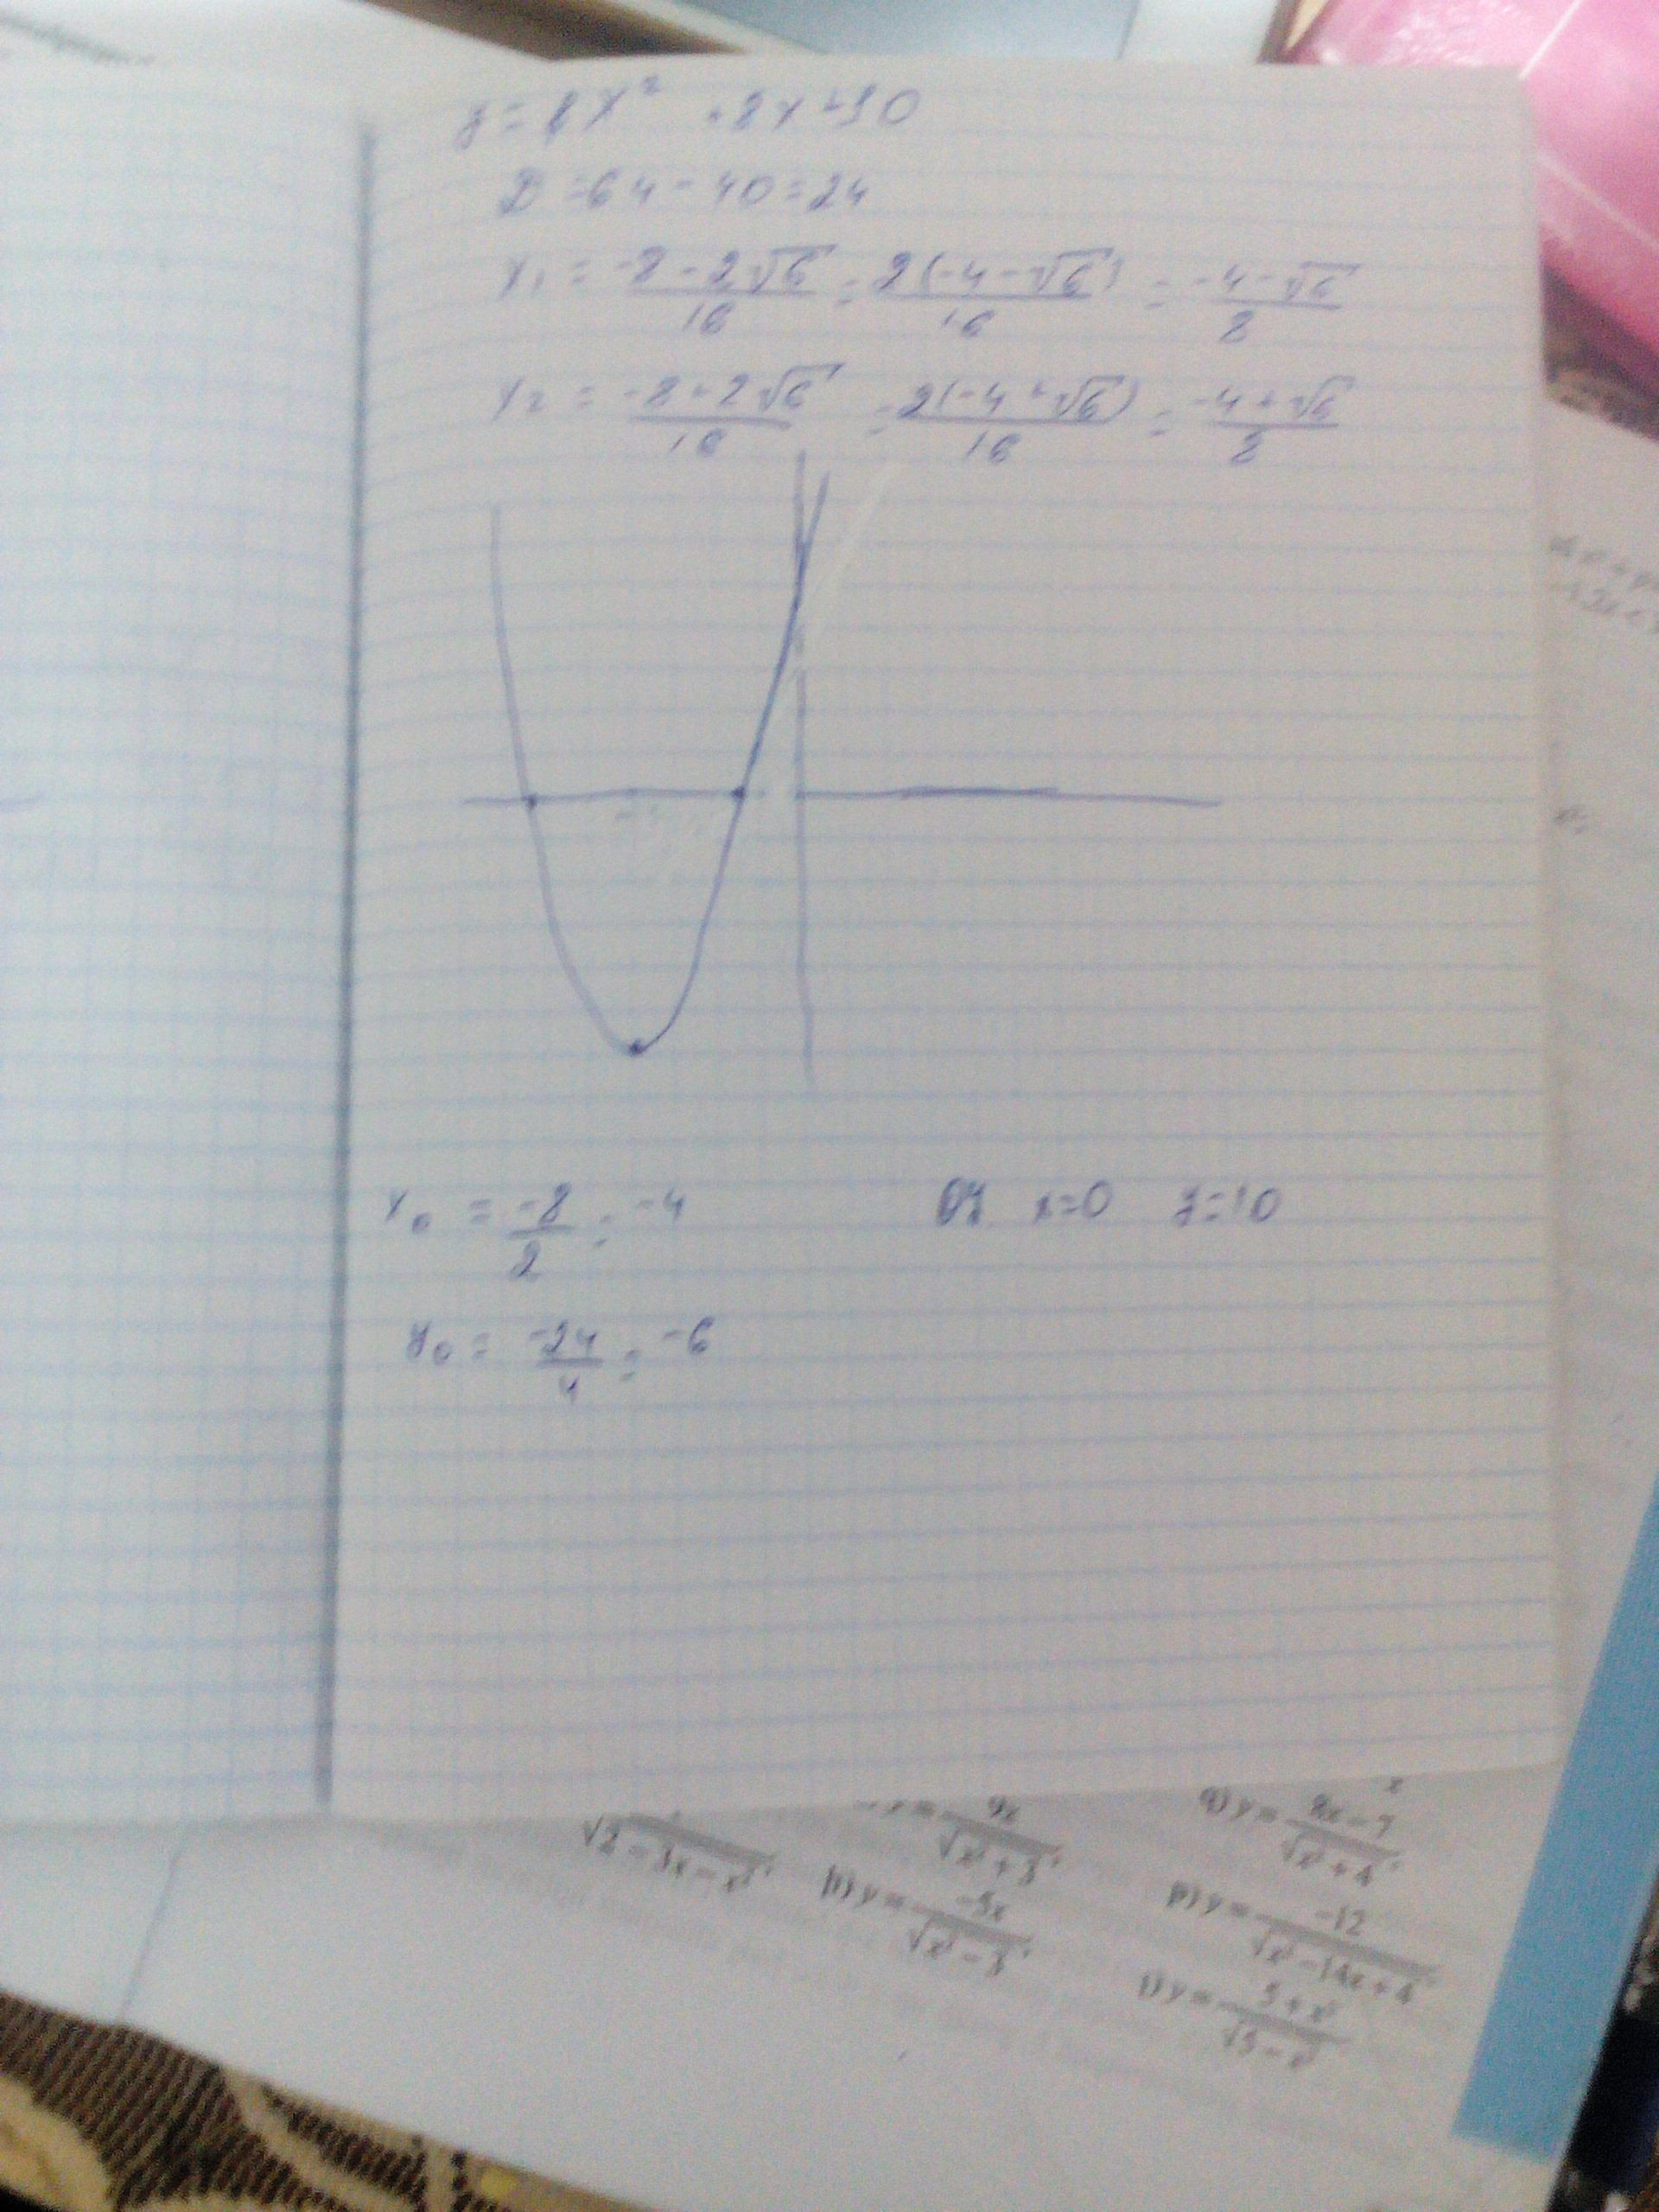 y = x² + 8x + 10
D = 64 - 40 = 24
x₁ = (-8 - 2√6)/16 = 2(-4 - √6)/16 = (-4 - √6)/8
x₂ = (-8 + 2√6)/16 = 2(-4 + √6)/16 = (-4 + √6)/8
x₀ = -8/2 = -4 OY x=0 y=10
y₀ = -24/4 = -6
√2 - 3x - x²
y = 9x/√x² + 3
q) y = 8x - 7/√x² + 4
h) y = -5x/√x² - 3
p) y = -12/√x² - 14x + 4
i) y = 5 + x²/√5 - x²